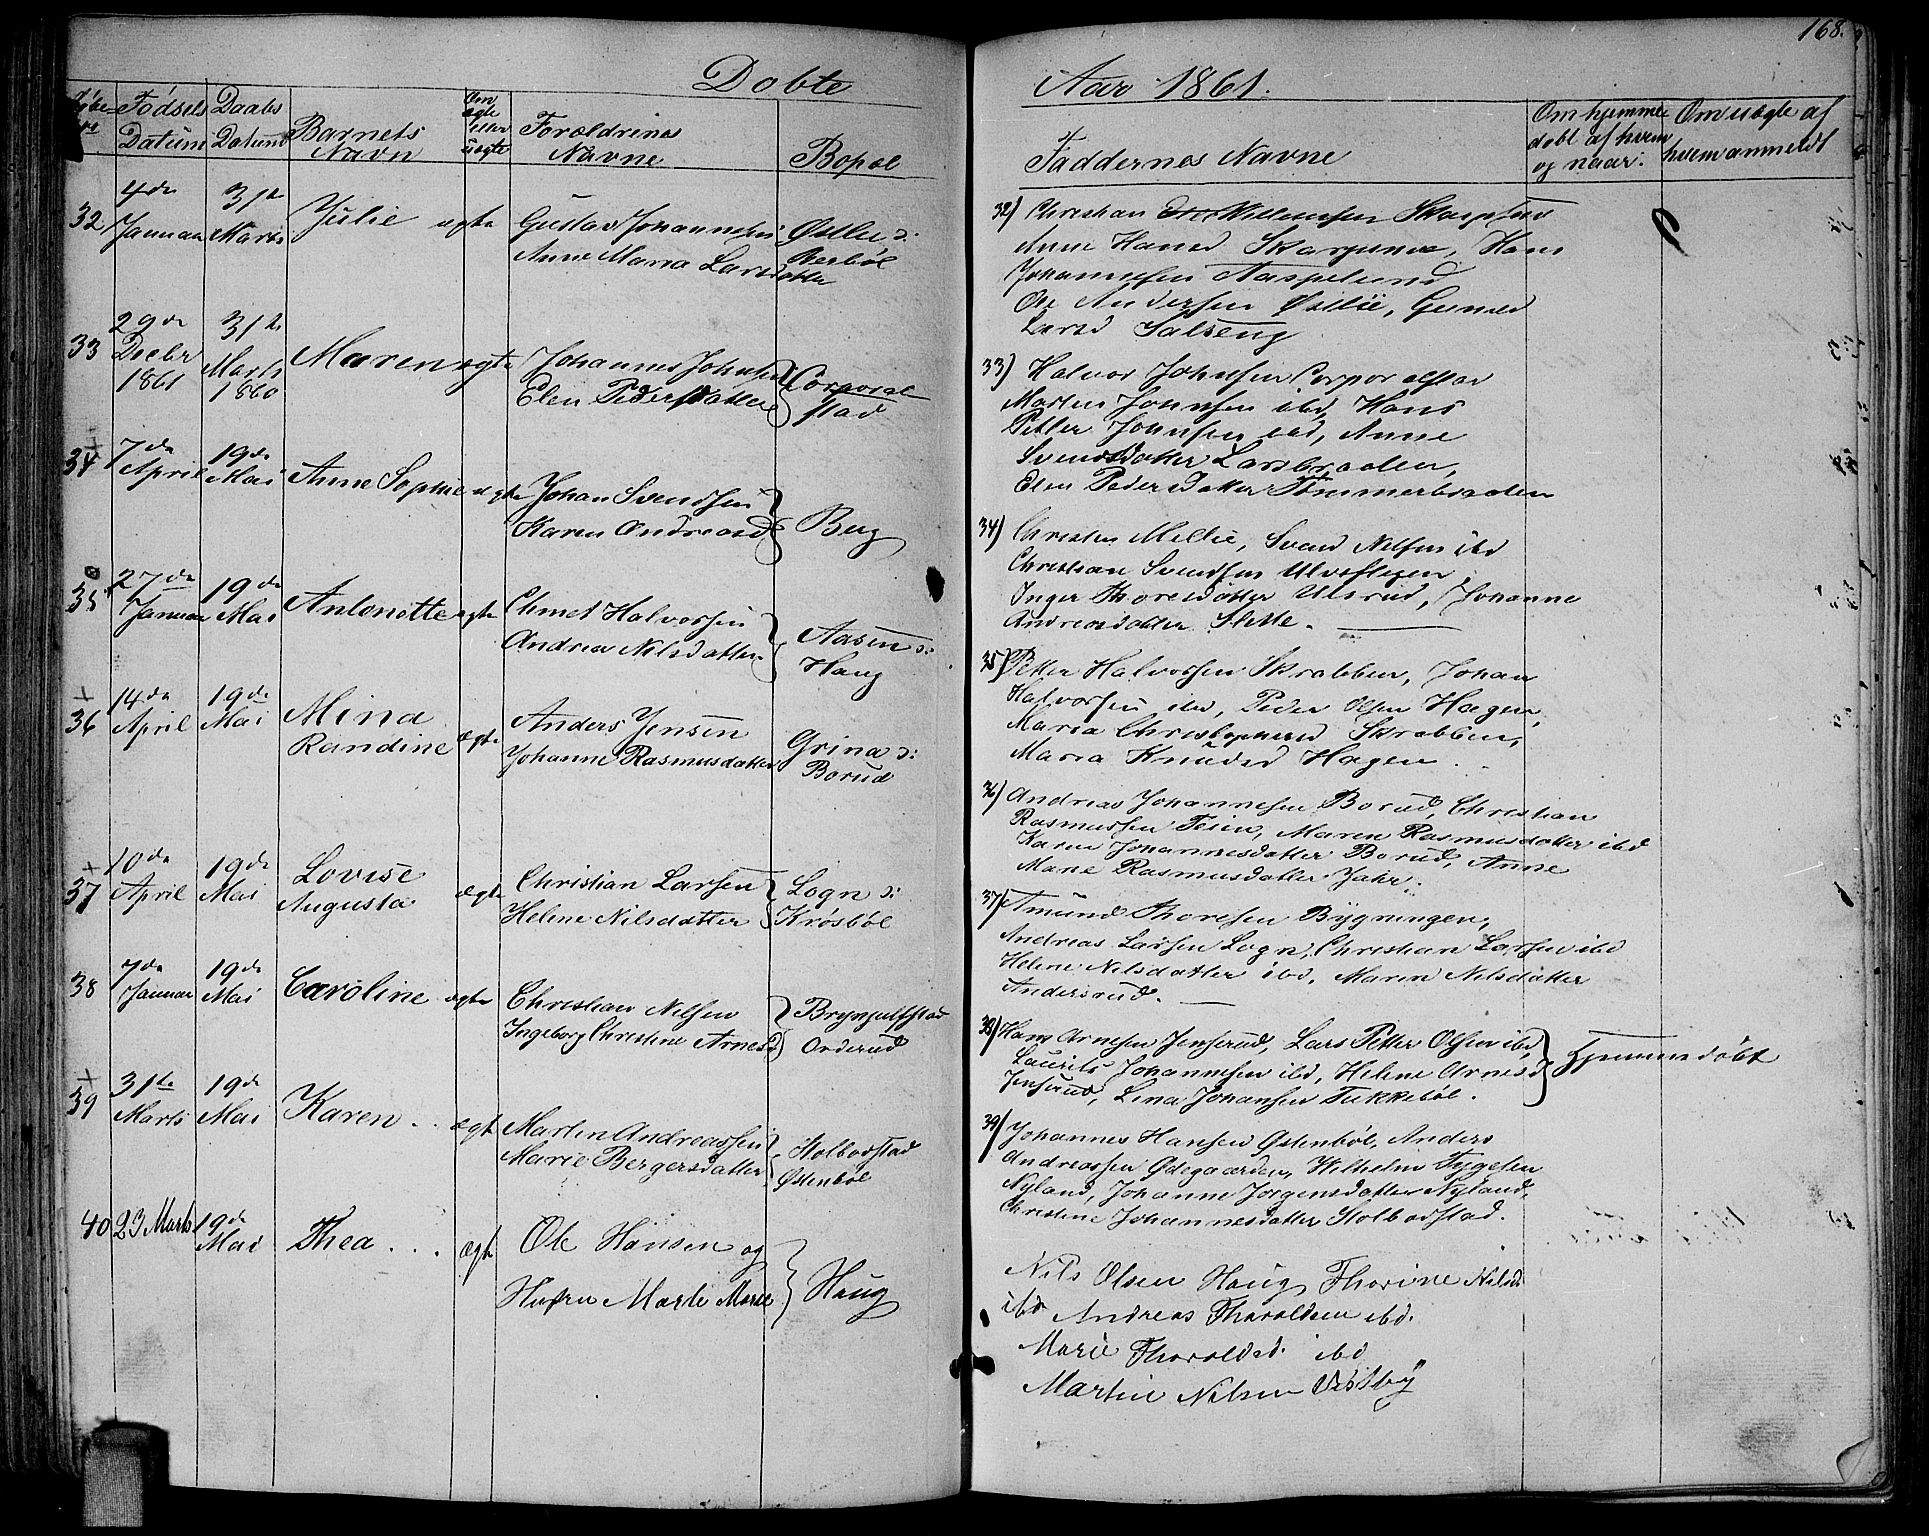 168.
Døbte
Aar 1861.
Fødsels Datum
Daabs Datum
Barnets Navn
Om ægte eller uægte
Forældrenes Navne
Bopæl
Faddernes Navne
Om hjemme døbt af hvem og naar.
Om uægte af hvem anmeldt
32
4de Januar
31te Marts
Julie
ægte
Gustav Johannesen
Anne Maria Larsdatter
Østlie
32) Christian Willumsen
Anne Hansd Skarpsno, Hans
Johannesen Aaspelund
Ole Andersen Østlie, Gunild
Larsd
33
29de Decbr 1861
31te Marts 1860
Maren
ægte
Johannes Johnsen
Elen Pedersdatter
Corporalstad
33) Halvor Johnsen Corporalstad
Martin Johnsen ibd, Hans
Petter Johnsen ibd, Anne
Svendsdatter Larsbraaten,
Elen Pedersdatter Tømmerbraaten
34
7de April
19de Mai
Anne Sophie
ægte
Johan Svendsen
Karen Andreasd
Berg
34) Christen Mellie, Svend Nilsen ibd
Christian Svendsen Ulvestegen
Inger Thoresdatter Ulsrud, Johanne
Andreasdatter Slette.
35
27de Januar
19de Mai
Antonette
ægte
Ehmet Halvorsen
Andrea Nilsdatter
Aasen
Haug
35) Petter Halvorsen Skrabben, Johan
Halvorsen ibd, Peder Olsen Hagen,
Maria Christophersd Skrabben,
Maria Knudsd Hagen.
36
14de April
19de Mai
Mina Randine
ægte
Anders Jensen
Johanne Rasmusdatter
Grina
Borud
36) Andreas Johannesen Borud, Christian
Rasmussen Teien, Maren Rasmusdatter ibd
Karen Johannesdatter Borud, Anne
Marie Rasmusdatter Jahr.
37
10de April
19de Mai
Lovise Augusta
ægte
Christian Larsen
Helene Nilsdatter
Logn
Krosbøl
37) Amund Thoresen Bygningen,
Andreas Larsen Logn, Christian Larsen ibd
Helene Nilsdatter ibd, Maren Nilsdatter
Andersrud.
38
7de Januar
19de Mai
Caroline
ægte
Christian Nilsen
Ingeborg Christine Arnesd
Brynjulfstad
Orderud
38) Hans Arnesen Jenserud, Lars Petter Olsen ibd,
Laurits Johannesen ibd, Helene Arnesd
Jenserud, Lina Johansen Tukkebøl.
Hjemmedøbt
39
31te Marts
19de Mai
Karen
ægte
Martin Andreassen
Marie Bergersdatter
Holbostad
Østenbøl
39) Johannes Hansen Østenbøl, Anders
Andreassen Ødegaarden, Wilhelm Tygesen
Nyland, Johanne Jørgensdatter Nyland,
Christine Johannesdatter Holbostad.
40
23 Marts
19de Mai
Thea
ægte
Ole Hansen og
Hustru Marte Marie
Haug
Nils Olsen Haug Thorine Nilsd
ibd Andreas Tharaldsen ibd.
Marie Tharaldsd ibd
Martin Nilsen Vestby